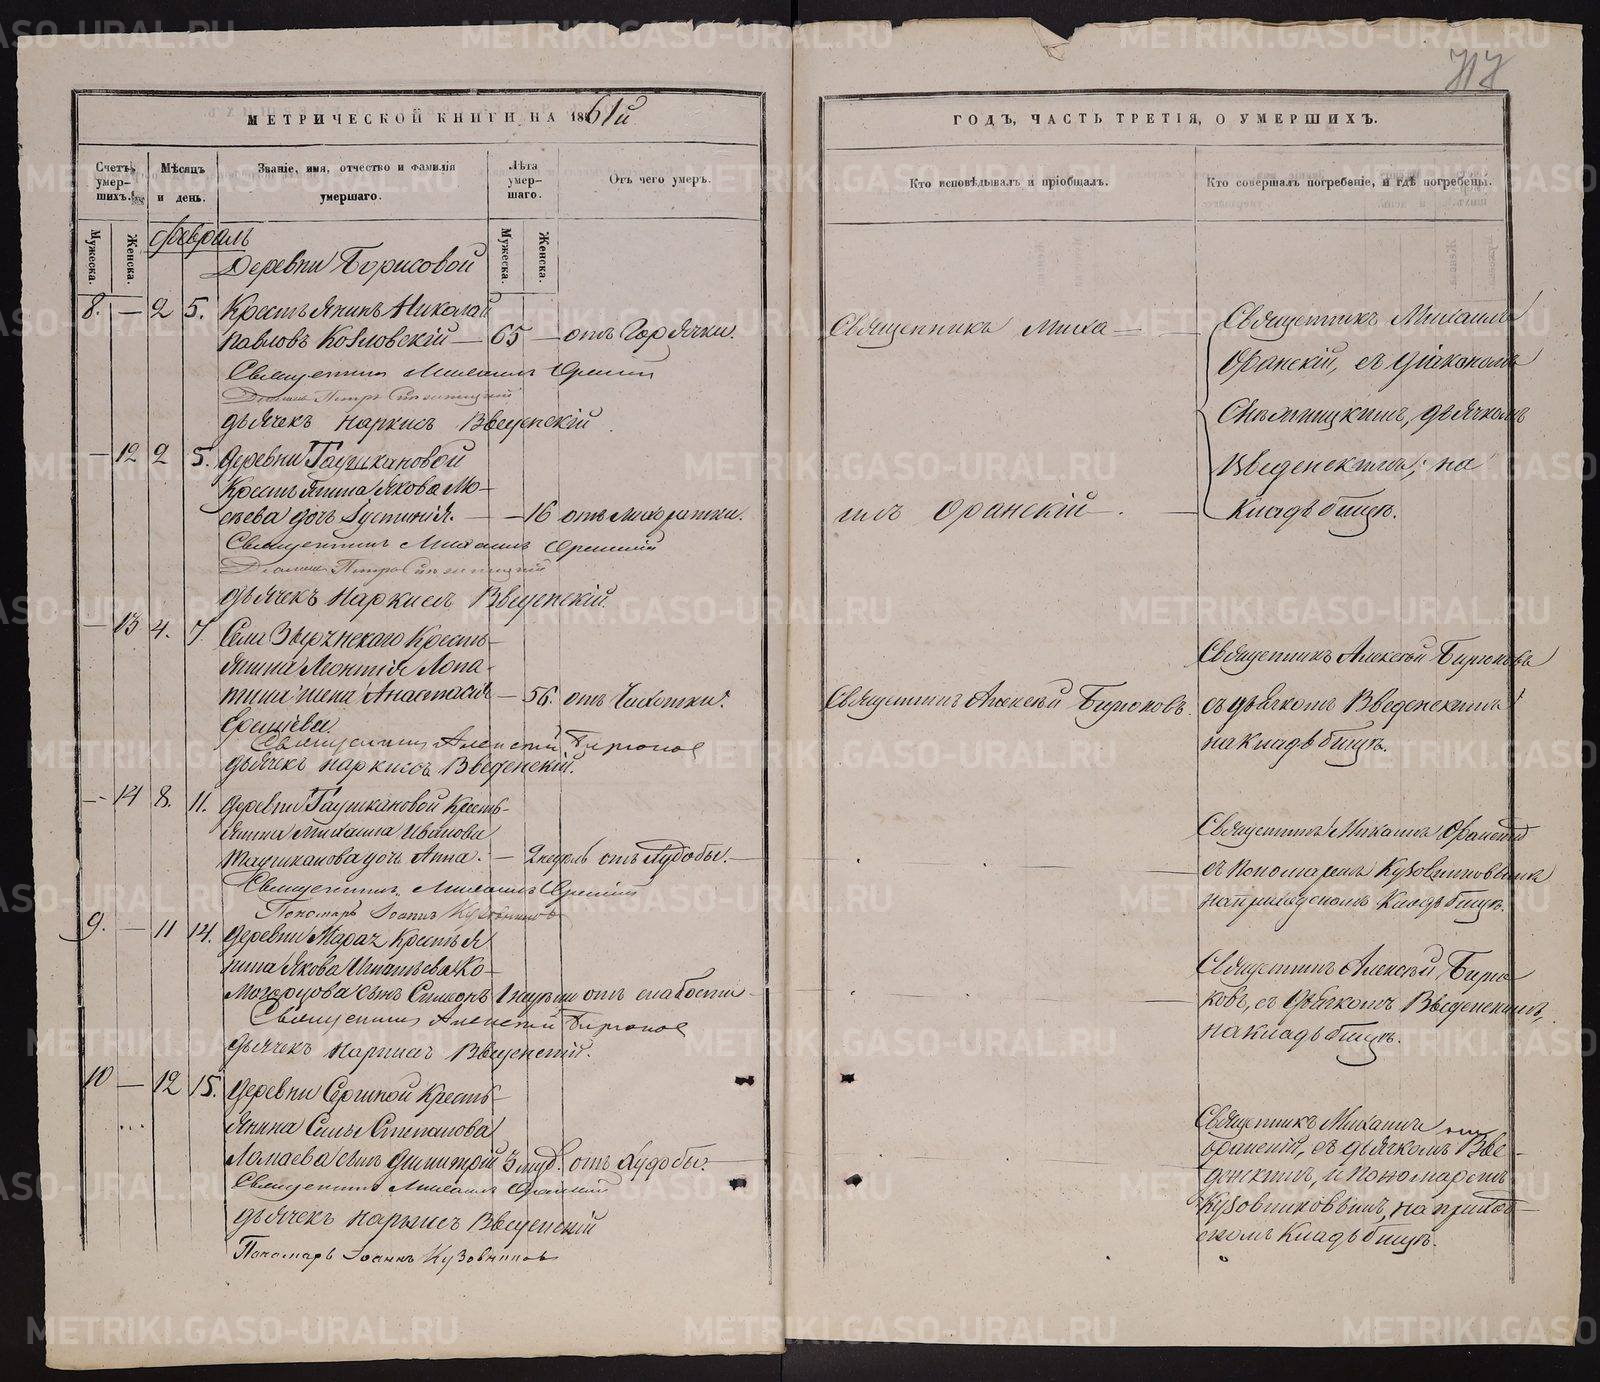 717
МЕТРИЧЕСКОЙ КНИГИ НА 1861й
ГОДЪ, ЧАСТЬ ТРЕТІЯ, О УМЕРШИХЪ.
Счетъ умер-шихъ.
Мѣсяцъ и день.
Званіе, имя, отчество и фамилія умершаго.
Лѣта умер-шаго.
Отъ чего умеръ.
Кто исповѣдывалъ и пріобщалъ.
Кто совершалъ погребеніе, и гдѣ погребены.
Мужеска.
Женска.
Мужеска.
Женска.
Февраль
Деревни Борисовой
8. — 2 5. Крестьянинъ Николай
Павловъ Козловскій — 65 — отъ Горячки.
Священникъ Михаилъ Оранскій
Діаконъ Петръ
дьячекъ Наркисъ Введенскій
Священникъ Миха —
илъ Оранскій
Священникъ Михаилъ
Оранскій, съ Діакономъ
дьячкомъ
Введенскимъ, на
Кладбищѣ.
— 12 2 5. деревни Гаушкановой
Крестьянина Якова Мо-
сеева дочь Іустинія. — 16 отъ лихоратки.
Священникъ Михаилъ Оранскій
Діаконъ Петръ
дьячекъ Наркисъ Введенскій.
— 13 4. 7. Села Кресть-
янина Леонтія Лопа-
тина жена Анастасія — 56. отъ Чахотки.
Священникъ Алексѣй Бирюковъ
дьячекъ Наркисъ Введенскій.
Священникъ Алексѣй Бирюковъ.
Священникъ Алексѣй Бирюковъ
съ дьячкомъ Введенскимъ
на Кладбищѣ.
— 14 8. 11. деревни Гаушкановой Кресть-
янина Михаила Иванова
дочь Анна. — 2 недѣль отъ Худобы. —
Священникъ Михаилъ Оранскій
Пономарь Іоаннъ Кузовниковъ
Священникъ Михаилъ Оранскій
съ пономаремъ Кузовниковымъ
на приходскомъ Кладбищѣ.
9. — 11 14. деревни Кресть-
нина Якова Игнатьева Ко-
сынъ Симеонъ 1 отъ слабости —
Священникъ Алексѣй Бирюковъ
дьячекъ Наркисъ Введенскій.
Священникъ Алексѣй Бирю-
ковъ, съ дьячкомъ Введенскимъ,
на Кладбищѣ.
10 — 12 15. деревни Сергиной Кресть-
янина Силы Степанова
сынъ Димитрій отъ Худобы.
Священникъ Михаилъ Оранскій
дьячекъ Наркисъ Введенскій
Пономарь Іоаннъ Кузовниковъ
Священникъ Михаилъ
Оранскій, съ дьячкомъ Вве-
денскимъ, и пономаремъ
Кузовниковымъ, на приход-
скомъ Кладбищѣ.
METRIKI.GASO-URAL.RU